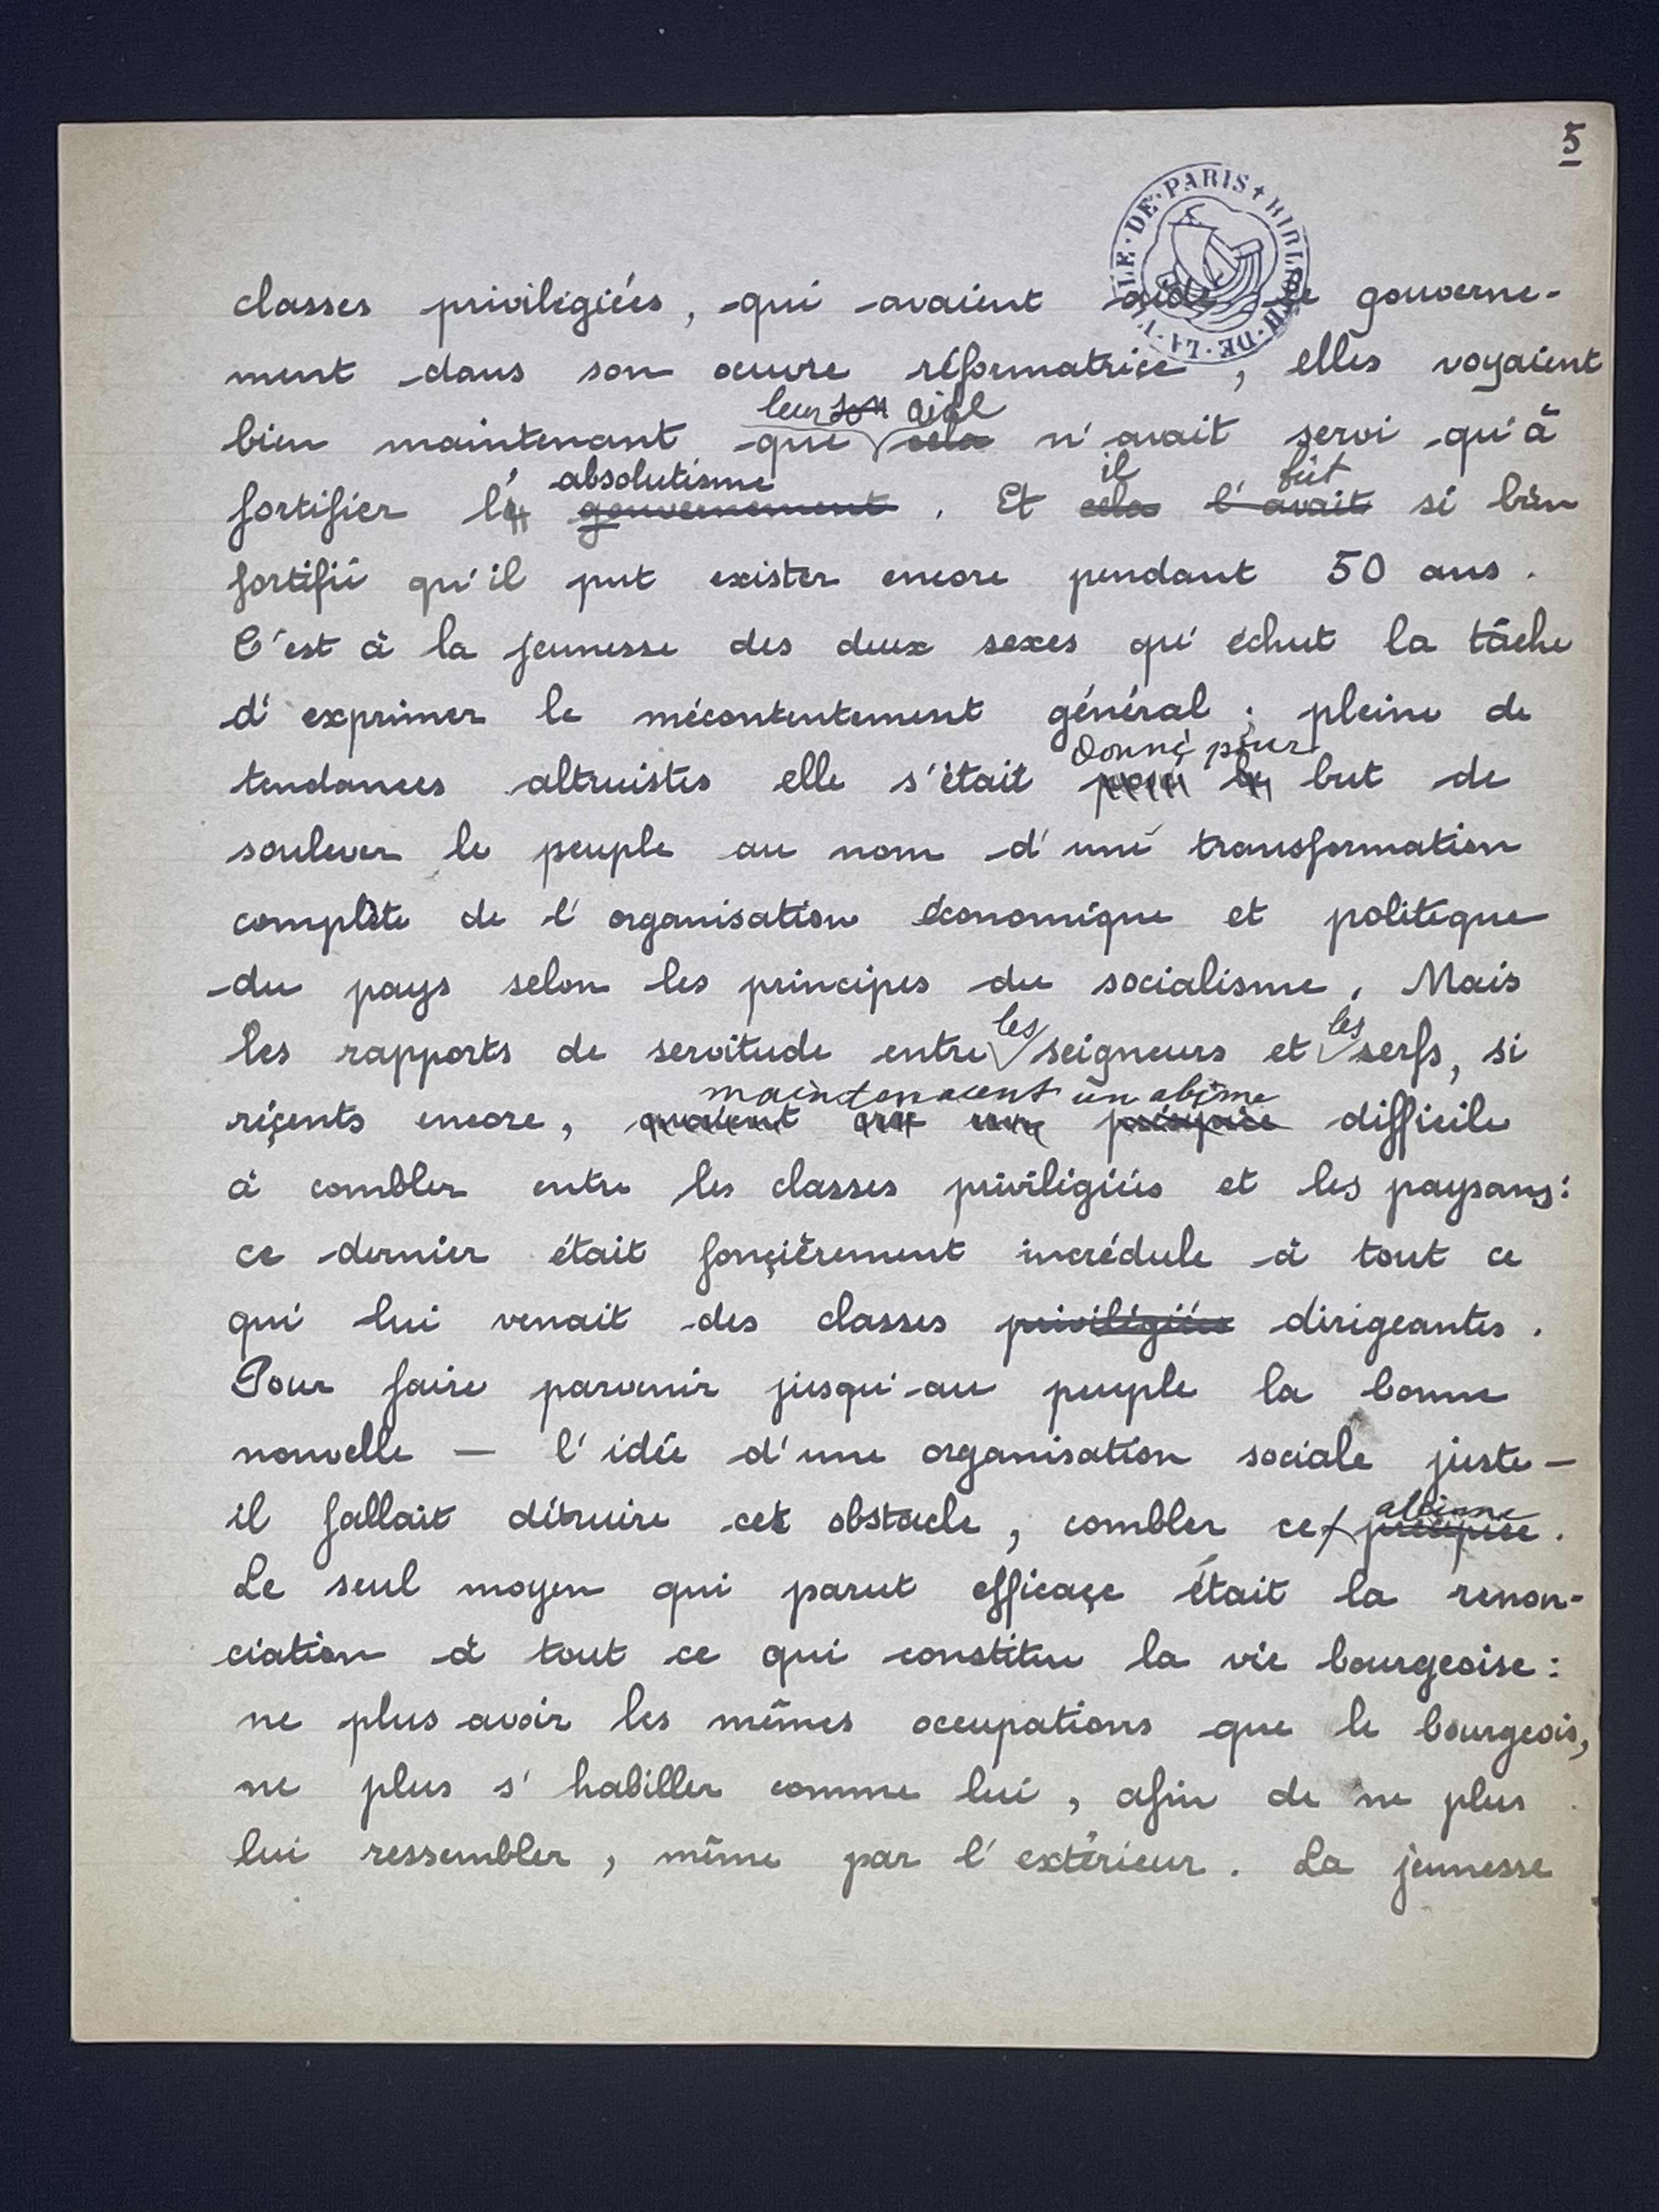 5
VILLE·DE·PARIS + BIBLIOTH·DE·LA
classes privilégiées, qui avaient aidé le gouverne-
ment dans son oeuvre réformatrice, elles voyaient
leur son aide
bien maintenant que cela n'avait servi qu'à
absolutisme il fût
fortifier l' gouvernement. Et cela l'avait si bien
fortifié qu'il put exister encore pendant 50 ans.
C'est à la jeunesse des deux sexes qu'échut la tâche
d'exprimer le mécontentement général; pleine de
donné pour
tendances altruistes elle s'était posé le but de
soulever le peuple au nom d'une transformation
complète de l'organisation économique et politique
du pays selon les principes du socialisme. Mais
les les
les rapports de servitude entre seigneurs et serfs, si
maintenaient un abîme
réçents encore, avaient une précipice difficile
à combler entre les classes privilégiées et les paysans:
ce dernier était fonçièrement incrédule à tout ce
qui lui venait des classes privilégiées dirigeantes.
Pour faire parvenir jusqu'au peuple la bonne
nouvelle — l'idée d'une organisation sociale juste —
abîme
il fallait détruire cet obstacle, combler cet précipice.
Le seul moyen qui parut efficaçe était la renon-
ciation à tout ce qui constitue la vie bourgeoise:
ne plus avoir les mêmes occupations que le bourgeois,
ne plus s'habiller comme lui, afin de ne plus
lui ressembler, même par l'extérieur. La jeunesse